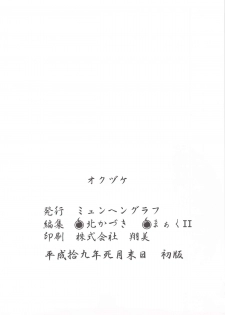 オクヅケ
発行 ミュンヘングラフ
編集 ●北かづき ●まぁくII
印刷 株式会社 翔美
平成拾九年死月末日 初版